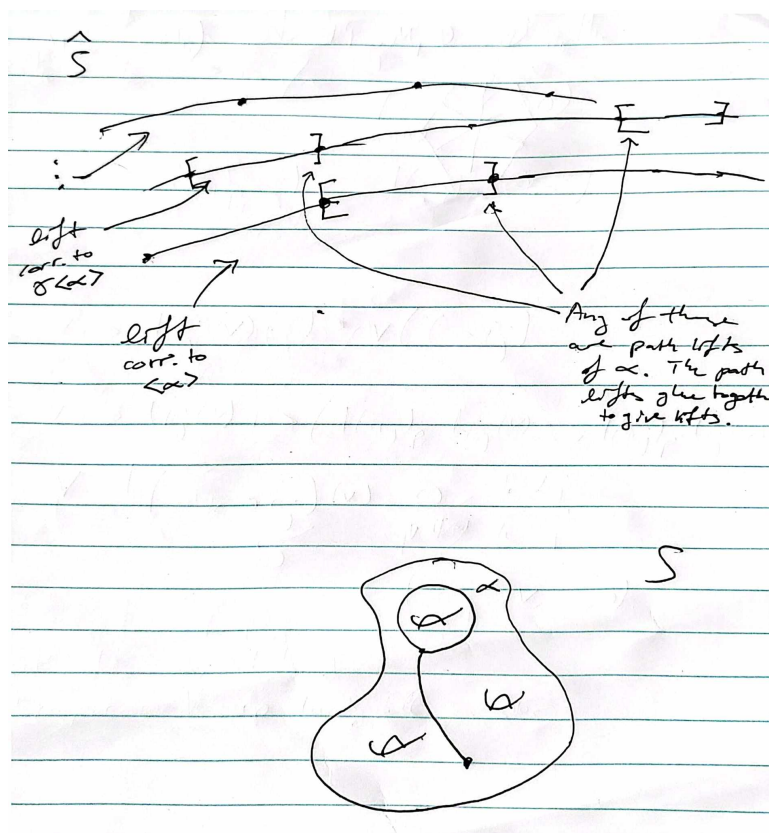 Ŝ
⋮
lift
corr. to
γ<α>
lift
corr. to
<α>
Any of these
are path lifts
of α. The path
lifts glue togeth
to give lifts.
S
α